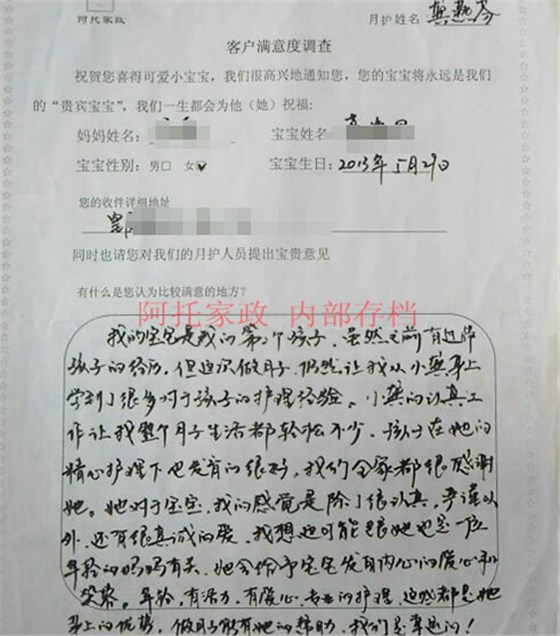 阿托家政
月护姓名
客户满意度调查
祝贺您喜得可爱小宝宝，我们很高兴地通知您，您的宝宝将永远是我们
的“贵宾宝宝”，我们一生都会为他（她）祝福:
妈妈姓名:
宝宝姓名
宝宝性别: 男□ 女☑
宝宝生日: 2013年5月29日
您的收件详细地址
同时也请您对我们的月护人员提出宝贵意见
有什么是您认为比较满意的地方?
阿托家政 内部存档
我的宝宝是我的第二个孩子，虽然之前有过带
孩子的经历，但这次做月子，仍然让我从小龚身上
学到了很多对于孩子的护理经验。小龚的认真工
作让我整个月子生活都轻松不少，孩子在她的
精心护理下也发育的很好，我们全家都很感谢
她。她对于宝宝，我的感觉是除了很认真，严谨以
外，还有很真诚的爱，我想也可能跟她也是一位
年轻的妈妈有关，她会给予宝宝发自内心的爱心和
笑容。年轻，有活力，有爱心，专业的护理，这然都是她
身上的优势，做月子能有她的帮助，我们是幸运的!